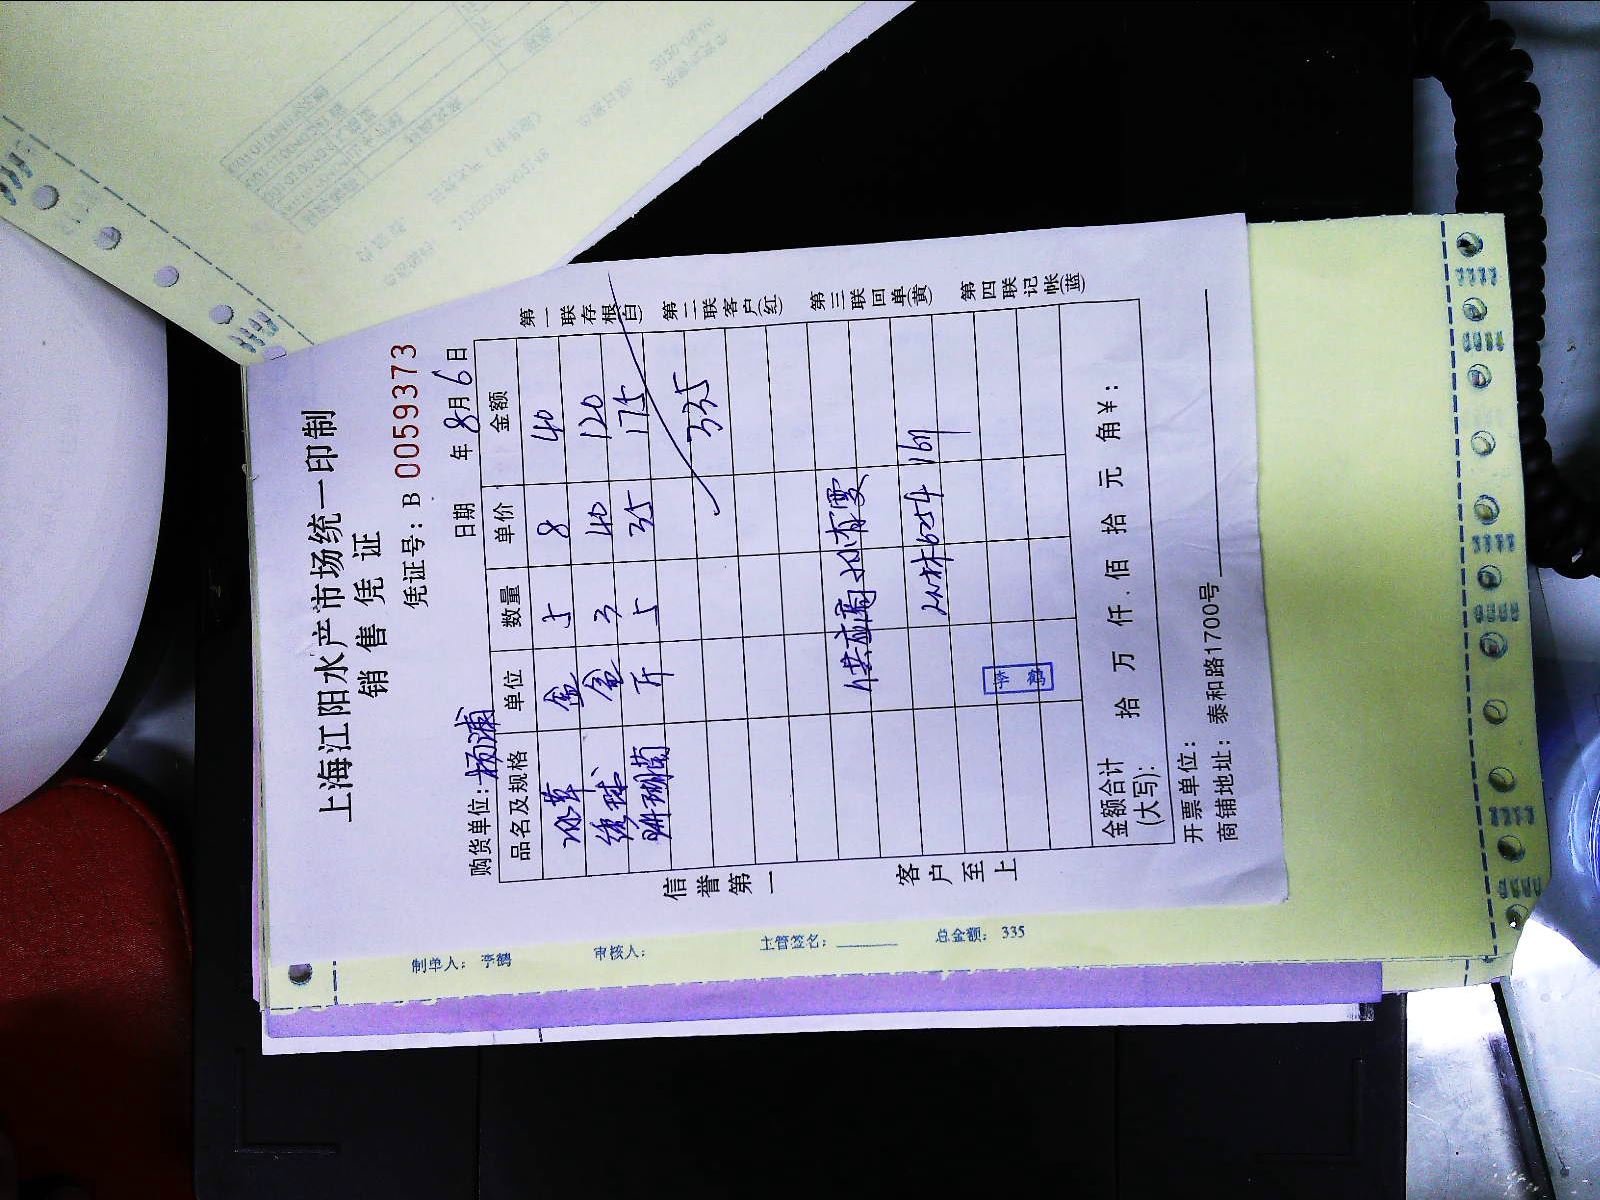 上海江阳水产市场统一印制
销售凭证
凭证号：B 0059373
购货单位：杨浦 日期 年 8月6日
品名及规格 单位 数量 单价 金额
冰草 盒 5 8 40
绣球 盒 3 40 120
珊瑚菌 斤 5 35 175
335
供应商
6054
李鹤
金额合计(大写)： 拾 万 仟 佰 拾 元 角 ¥：
开票单位：
商铺地址：泰和路1700号
信誉第一 客户至上
第一联存根(白)
第二联客户(红)
第三联回单(黄)
第四联记帐(蓝)
制单人：李鹤 审核人： 主管签名： 总金额：335